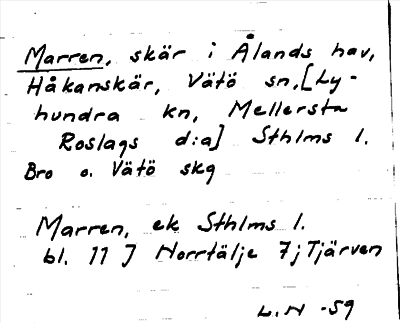 Marren, skär i Ålands hav,
Håkanskär, Vätö sn, [Ly-
hundra kn, Mellersta
Roslags d:a] Sthlms l.
Bro o. Vätö skg
Marren, ek Sthlms l.
bl. 11 J Norrtälje 7j Tjärven
L.N -59